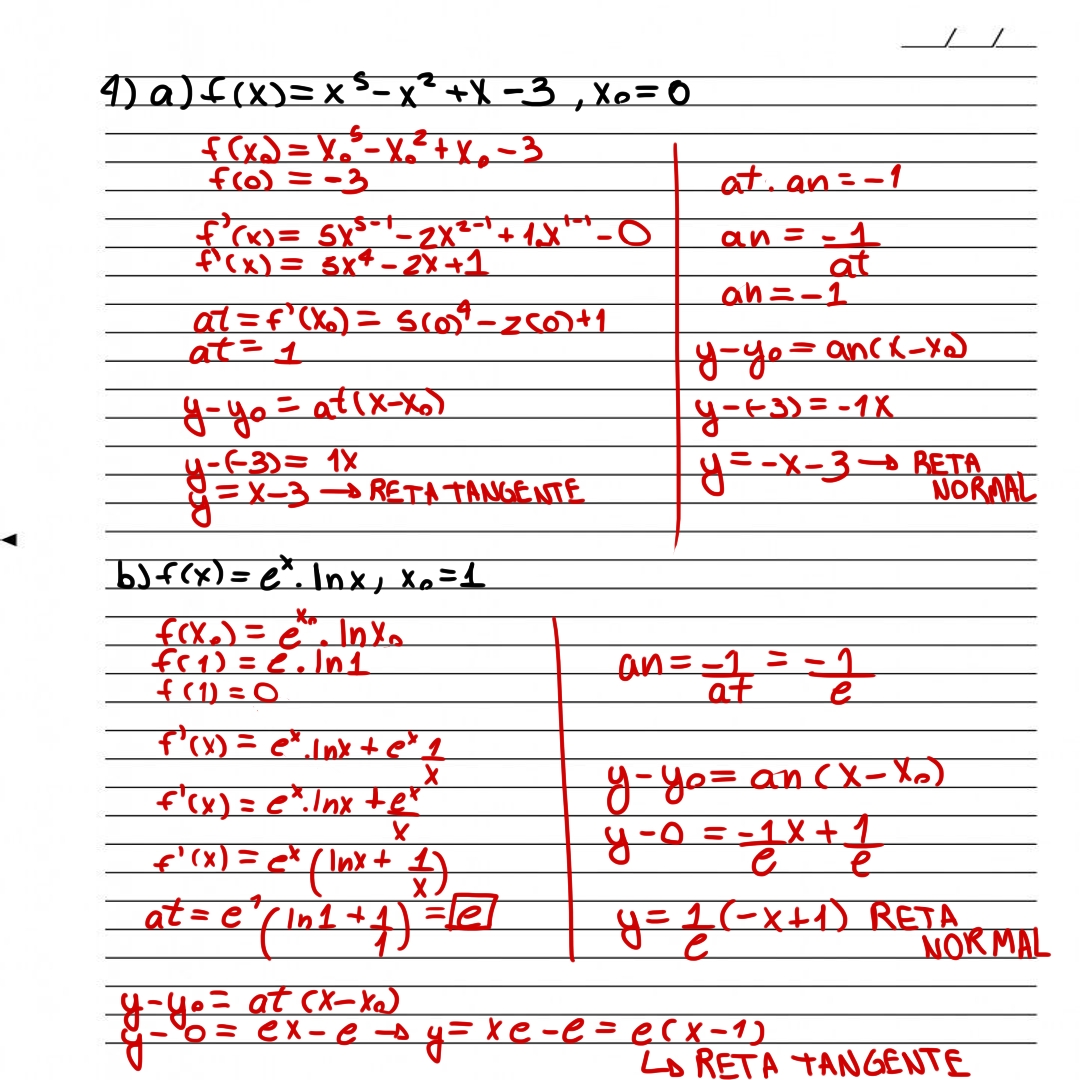 __/__/__
4) a) f(x) = x⁵ - x² + x - 3 , x₀ = 0
f(x₀) = x₀⁵ - x₀² + x₀ - 3
f(0) = -3
f'(x) = 5x⁵⁻¹ - 2x²⁻¹ + 1.x¹⁻¹ - 0
f'(x) = 5x⁴ - 2x + 1
at = f'(x₀) = 5(0)⁴ - 2(0) + 1
at = 1
y - y₀ = at(x - x₀)
y - (-3) = 1x
y = x - 3 → RETA TANGENTE
at . an = -1
an = -1/at
an = -1
y - y₀ = an(x - x₀)
y - (-3) = -1x
y = -x - 3 → RETA
NORMAL
b) f(x) = eˣ . ln x, x₀ = 1
f(x₀) = eˣ⁰ . ln x₀
f(1) = e . ln 1
f(1) = 0
f'(x) = eˣ . ln x + eˣ 1/x
f'(x) = eˣ . ln x + eˣ/x
f'(x) = eˣ (ln x + 1/x)
at = e¹ (ln 1 + 1/1) = e
an = -1/at = -1/e
y - y₀ = an (x - x₀)
y - 0 = -1/e x + 1/e
y = 1/e (-x + 1) RETA
NORMAL
y - y₀ = at (x - x₀)
y - 0 = ex - e → y = xe - e = e(x - 1)
↳ RETA TANGENTE